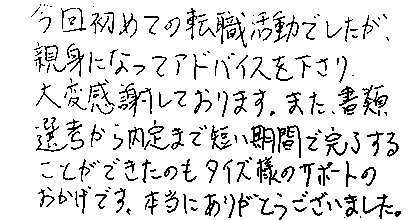 今回初めての転職活動でしたが、
親身になってアドバイスを下さり
大変感謝しております。また、書類
選考から内定まで短い期間で完了する
ことができたのもタイズ様のサポートの
おかげです。本当にありがとうございました。